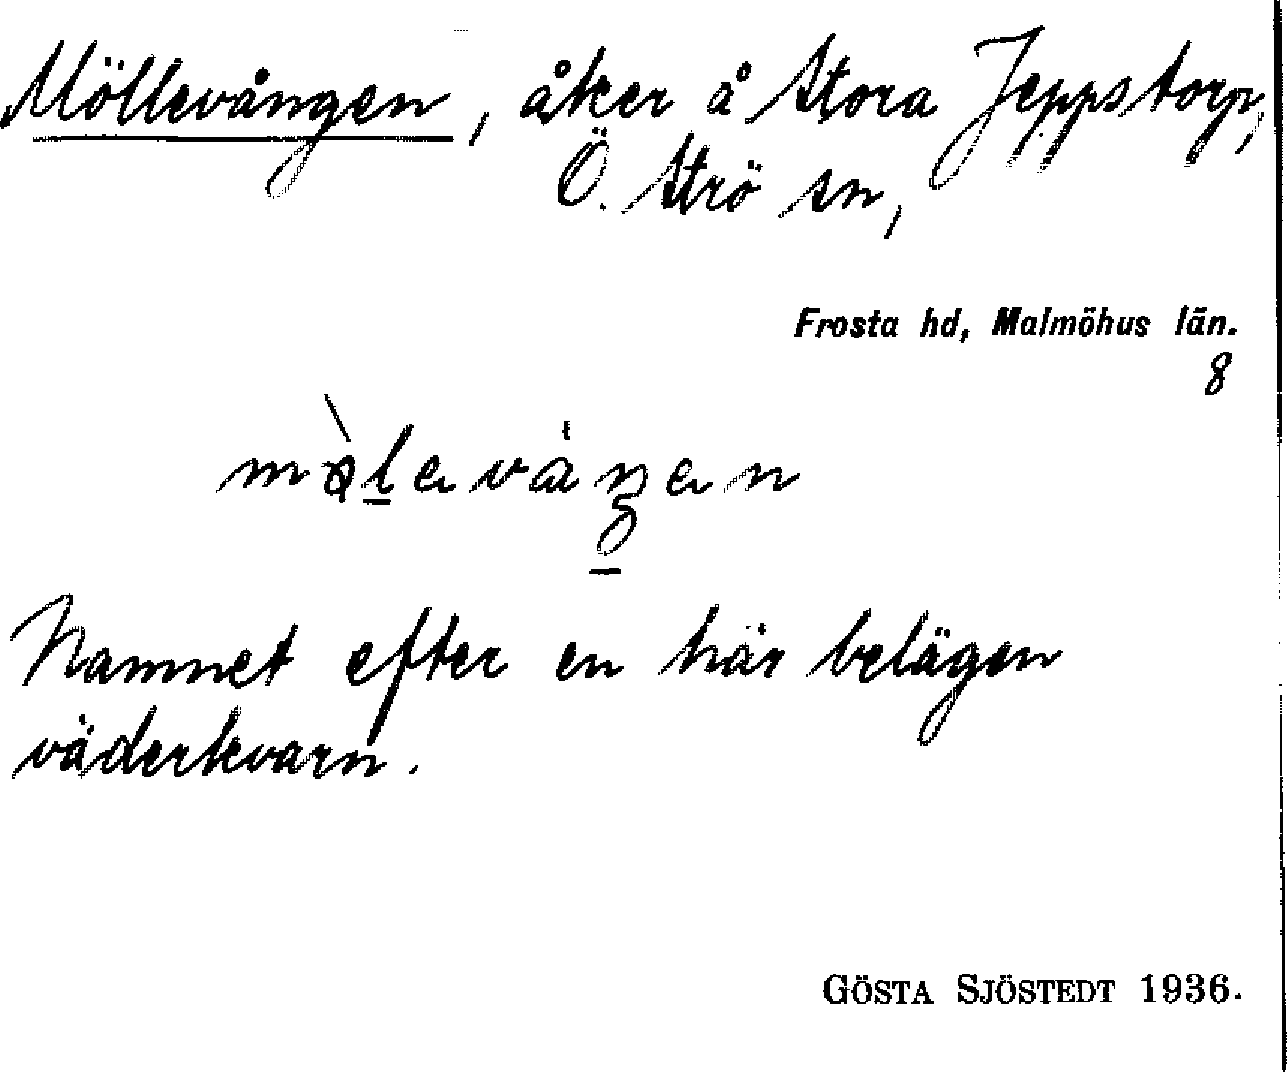 Möllevången, åker å Stora Jeppstorp,
Ö. Strö sn,
Frosta hd, Malmöhus län.
8
Namnet efter en här belägen
väderkvarn.
GÖSTA SJÖSTEDT 1936.